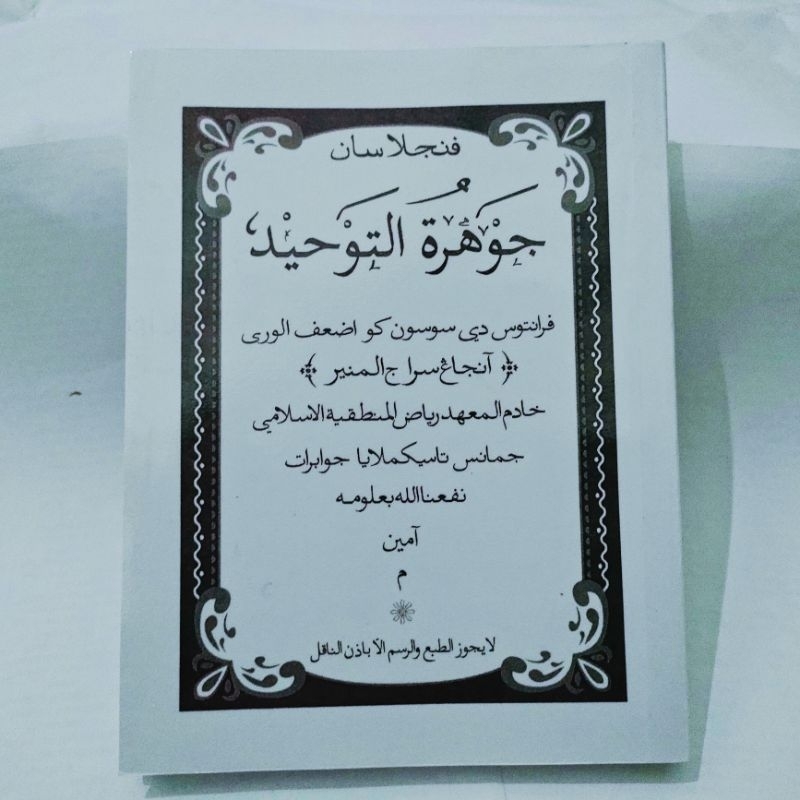 فنجلاسان
جَوْهَرَةُ التَوْحِيْدِ
فرانتوس دي سوسون کو اضعف الوری
﴿ آنجاڠ سراج المنير ﴾
خادم المعهد رياض المنطقية الاسلامي
جمانس تاسيکملايا جوابرات
نفعنا الله بعلومه
آمين
م
لا يجوز الطبع والرسم الا باذن الناقل